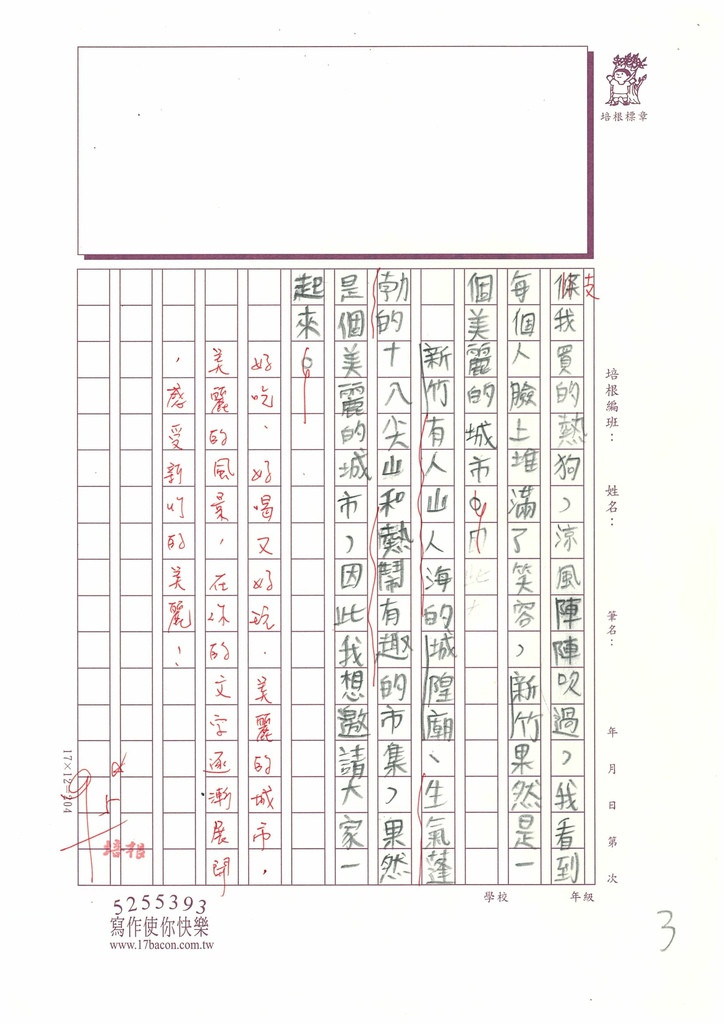 培根標章
條支我買的熱狗，涼風陣陣吹過，我看到
每個人臉上堆滿了笑容，新竹果然是一
個美麗的城市。
新竹有人山人海的城隍廟、生氣蓬
勃的十八尖山和熱鬧有趣的市集，果然
是個美麗的城市，因此我想邀請大家一
起來。
好吃、好喝又好玩．美麗的城市，
美麗的風景，在你的文字逐漸展開
，感受新竹的美麗！
培根編班：
姓名：
筆名：
年 月 日 第 次
學校 年級
17×12=204
95
培根
5255393
寫作使你快樂
www.17bacon.com.tw
3